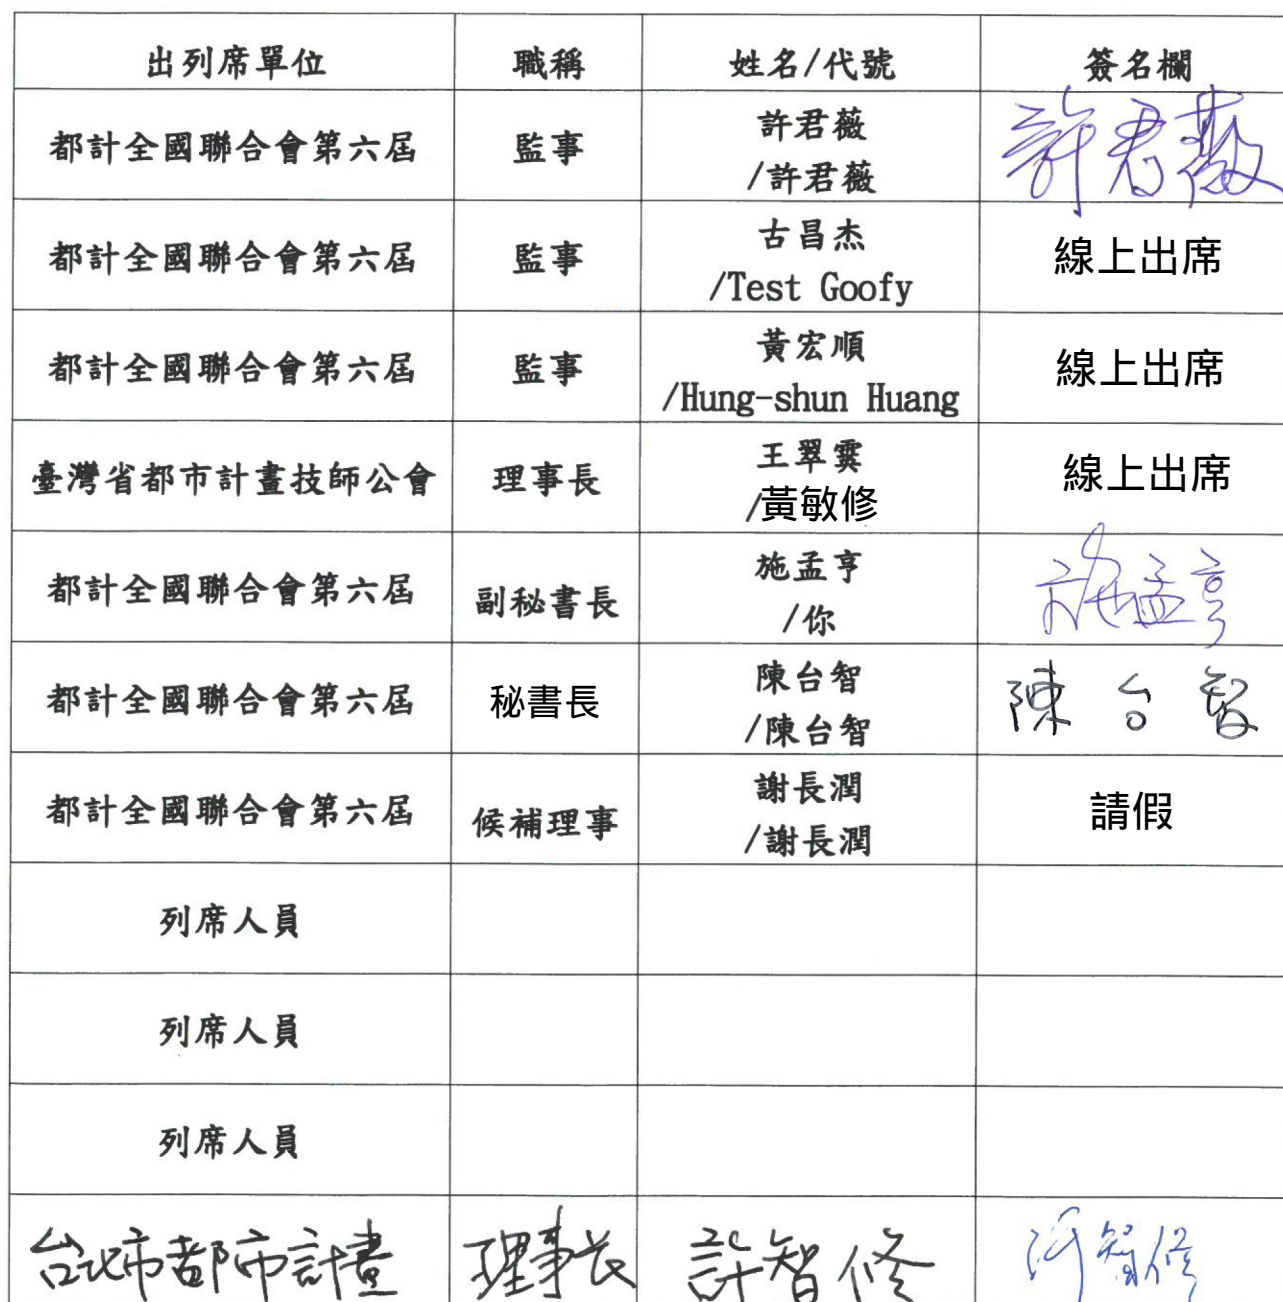 出列席單位 職稱 姓名/代號 簽名欄
都計全國聯合會第六屆 監事 許君薇 許君薇
/許君薇
都計全國聯合會第六屆 監事 古昌杰 線上出席
/Test Goofy
都計全國聯合會第六屆 監事 黃宏順 線上出席
/Hung-shun Huang
臺灣省都市計畫技師公會 理事長 王翠霙 線上出席
/黃敏修
都計全國聯合會第六屆 副秘書長 施孟亨 施孟亨
/你
都計全國聯合會第六屆 秘書長 陳台智 陳台智
/陳台智
都計全國聯合會第六屆 候補理事 謝長潤 請假
/謝長潤
列席人員
列席人員
列席人員
台北市都市計畫 理事長 許智修 許智修